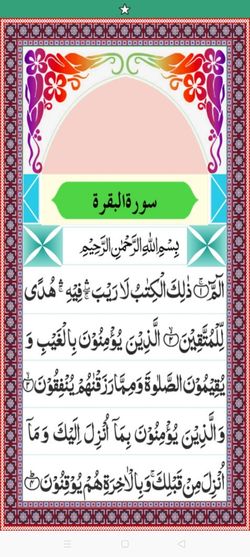 سورة البقرة
بِسْمِ اللّٰهِ الرَّحْمٰنِ الرَّحِيْمِ
الٓمّٓ ۚ﴿۱﴾ ذٰلِكَ الْكِتٰبُ لَا رَيْبَ ۛۚ فِيْهِ ۛۚ هُدًى
لِّلْمُتَّقِيْنَ ۙ﴿۲﴾ الَّذِيْنَ يُؤْمِنُوْنَ بِالْغَيْبِ وَ
يُقِيْمُوْنَ الصَّلٰوةَ وَمِمَّا رَزَقْنٰهُمْ يُنْفِقُوْنَ ۙ﴿۳﴾
وَالَّذِيْنَ يُؤْمِنُوْنَ بِمَآ اُنْزِلَ اِلَيْكَ وَ مَآ
اُنْزِلَ مِنْ قَبْلِكَ ۚ وَبِالْاٰخِرَةِ هُمْ يُوْقِنُوْنَ ؕ﴿۴﴾